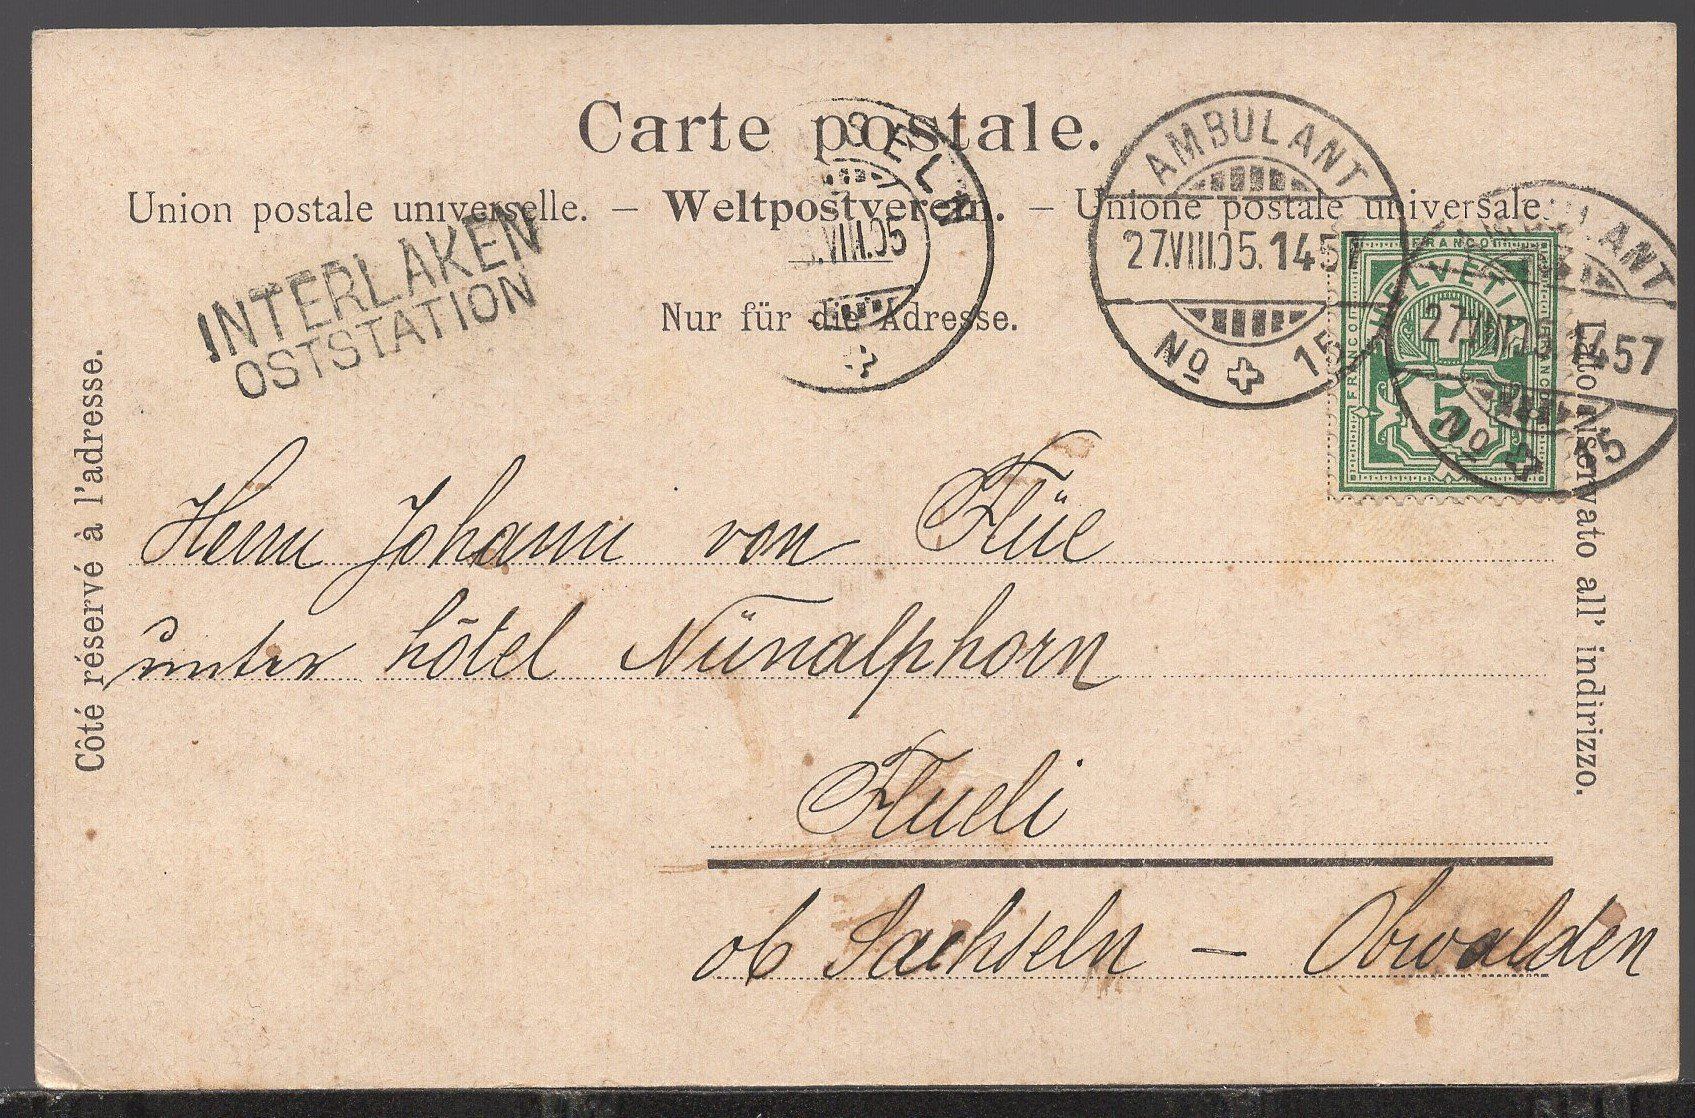 Carte postale.
Union postale universelle. – Weltpostverein. – Unione postale universale.
Nur für die Adresse.
Côté réservé à l'adresse.
Lato riservato all' indirizzo.
INTERLAKEN
OSTSTATION
SELN
VIII.05
AMBULANT
27.VIII.05.1457
No 15
AMBULANT
27.VIII.05.1457
No 15
FRANCO
HELVETIA
FRANCO
FRANCO
5
Herrn Johann von Flüe
unter hôtel Nünalphorn
Flueli
ob Sachseln – Obwalden